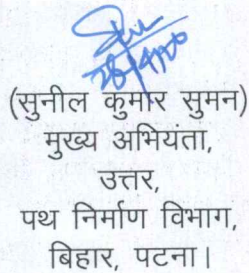 28/4/20
(सुनील कुमार सुमन)
मुख्य अभियंता,
उत्तर,
पथ निर्माण विभाग,
बिहार, पटना।